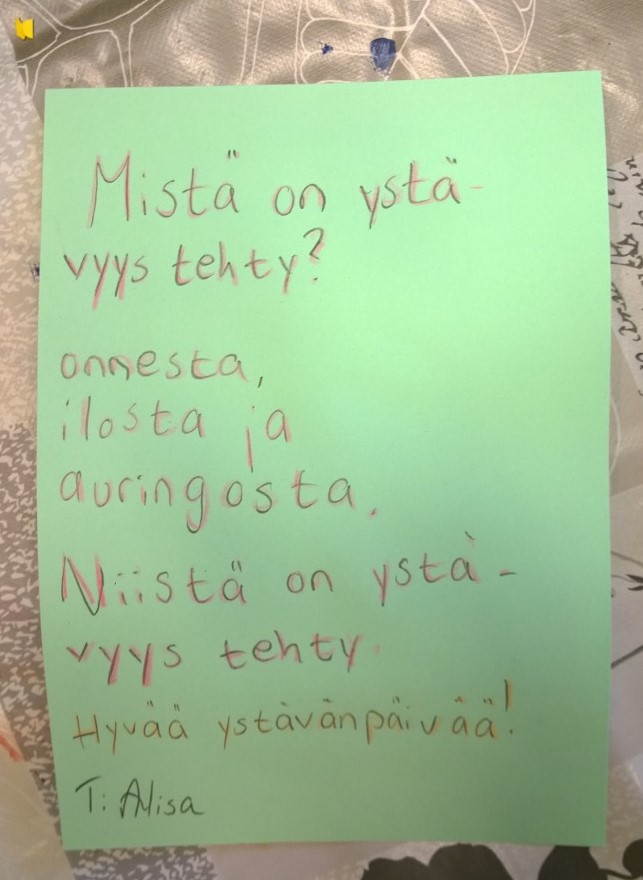 Mistä on ystä-
vyys tehty?
onnesta,
ilosta ja
auringosta.
Niistä on ystä-
vyys tehty.
Hyvää ystävänpäivää!
T: Alisa